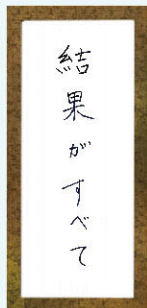 結果がすべて